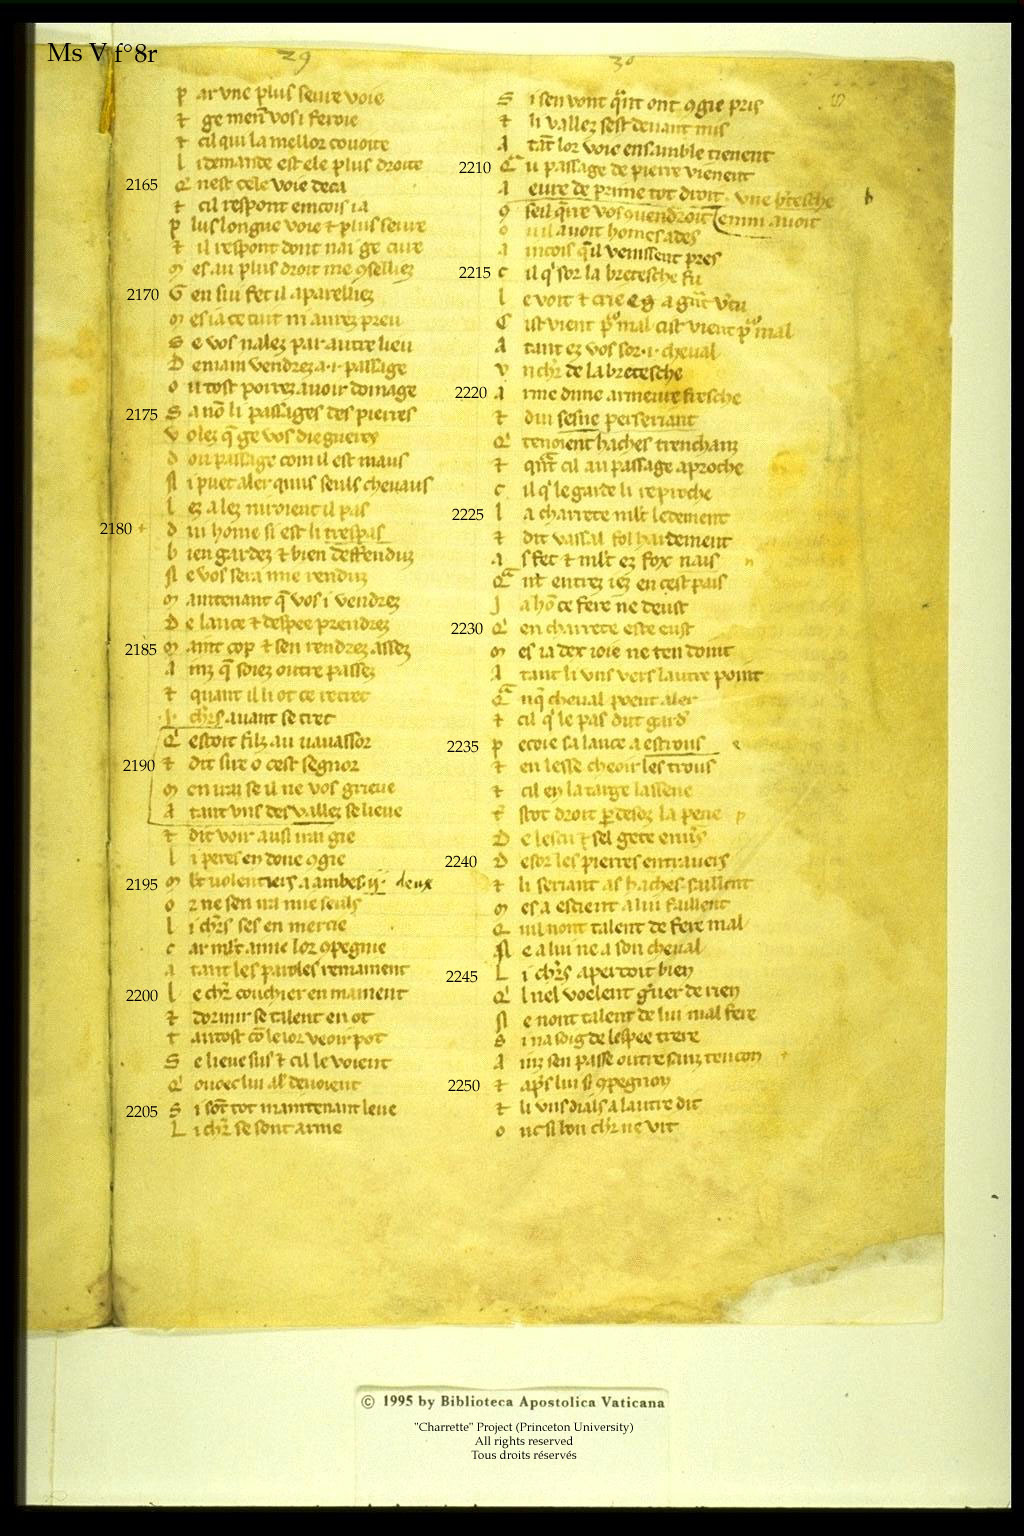 Ms V f° 8r
29
30
p ar vne plus seure voie
⁊ ge menr̃ vos i feroie
⁊ cil qui la mellor couoite
l i demande est ele plus droite
2165 Q nest cele voie deca
⁊ cil respont emcois ia
p lus longue voie ⁊ plus seure
⁊ il respont dont nai ge cure
m es au plus droit me ꝯselliez
2170 G en sui fet il aparelliez
m es ia ce cuit ni aurez preu
S e vos nalez par autre lieu
D emain vendrez a .i. passage
o u tost porrez auoir domage
2175 S a nõ li passages des pierres
v olez q̃ ge vos die
d ou passage com il est maus
N i puet aler quuns seuls cheuaus
l ez a lez niroient il pas
2180 d ui home si est li trespas
b ien gardez ⁊ bien deffenduz
N e vos sera mie renduz
m aintenant q̃ vos i vendrez
D e lance ⁊ despee prendrez
2185 m aint cop ⁊ sen rendrez assez
A inz q̃ soiez outre passez
⁊ quant il li ot ce retret
.i. chr̃s auant se tret
Q estoit filz au uauassor
2190 ⁊ dit sire o cest segnor
m en irai se il ne vos grieue
A tant vns des vallez se lieue
⁊ dit voir ausi irai gie
l i peres en done ꝯgie
2195 m lt uolentiers a ambes .ij. deux
o r ne sen ira mie seuls
l i chr̃s ses en mercie
c ar mlt amie lor ꝯpegnie
a tant les paroles remainent
2200 l e chr̃ couchier en mainent
⁊ dormir se talent en ot
t antost cõ le ior veoir pot
S e lieue sus ⁊ cil le voient
Q ouec lui aler deuoient
2205 S i sõt tot maintenant leue
L i chr̃ se sont arme
S i sen vont q̃nt ont ꝯgie pris
⁊ li vallez sest deuant mis
A tãt lor voie ensamble tienent
2210 Q u passage de pierre vienent
A eure de prime tot droit vne bretesche b
enmi auoit
o u il auoit homes ades
a incois q̃l venissent pres
2215 c il q' sor la bretesche fu
l e voit ⁊ crie a
C ist vient por mal cist vient por mal
A tant ez vos sor .i. cheual
v n chr̃ de la bretesche
2220 A rme dune armeure fresche
⁊ dui seriant
Q tenoient haches trenchanz
⁊ qñt cil au passage aproche
c il q' le garde li reproche
2225 l a charrete mlt ledement
⁊ dit vassal fol hardement
a s fet ⁊ mlt ez fox nais n
Q ñt entrez iez en cest pais
J a hõ ce fere ne deust
2230 Q en charrete este eust
m es ia dex ioie ne ten doint
A tant li vns vers lautre point
Q nq̃ cheual poent aler
⁊ cil q' le pas dut gard'
2235 p ecoie sa lance a estrous
⁊ en lesse cheoir les trous
⁊ cil en la targe lassene
t stot droit ꝑ desoz la pene p
D e lescu ⁊ sel gete enuers
2240 D esor les pierres entrauers
⁊ li seriant as haches saillent
m es a escient a lui faillent
Q uil nont talent de fere mal
N e a lui ne a son cheual
2245 L i chr̃s apercoit bien
Q l nel voelent g'uer de rien
N e nont talent de lui mal fere
S i na soig de lespee trere
A inz sen passe outre sanz tencon
2250 ⁊ ap̃s lui si ꝯpegnon
⁊ li vns dials a lautre dit
o nc si bon chr̃ ne vit
© 1995 by Biblioteca Apostolica Vaticana
"Charrette" Project (Princeton University)
All rights reserved
Tous droits réservés